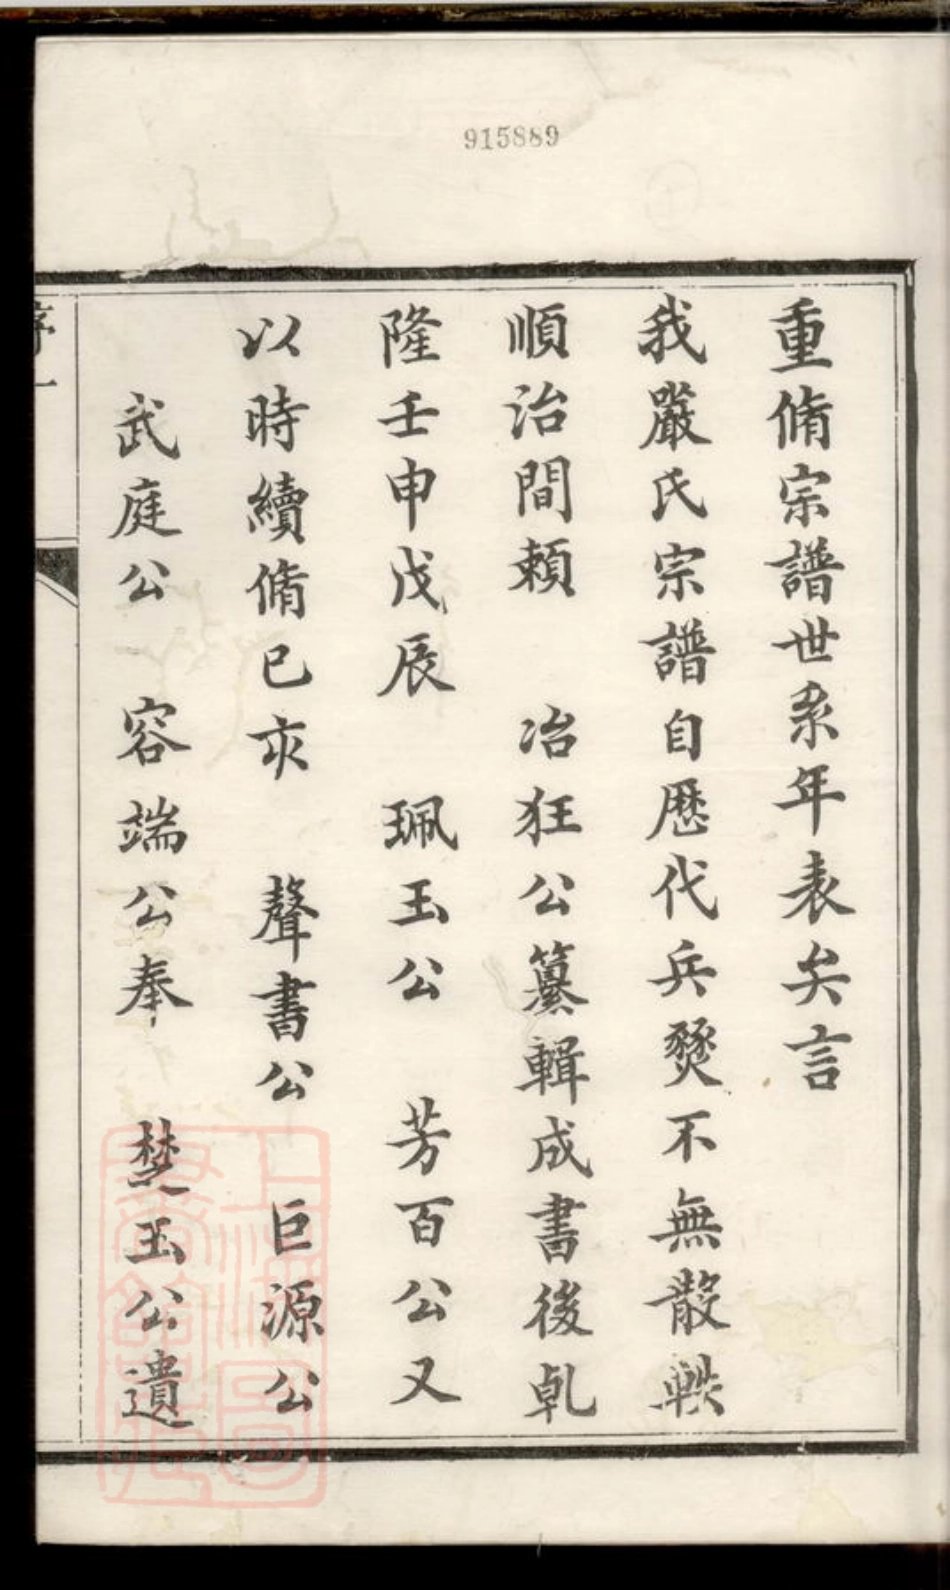 915889
重脩宗譜世系年表矣言
我嚴氏宗譜自歷代兵燹不無散軼
順治間賴　冶狂公纂輯成書後乹
隆壬申戊辰　珮玉公　芳百公又
以時續脩已亥　聲書公　巨源公
武庭公　容端公奉　楚玉公遺
序一
上海圖書館藏